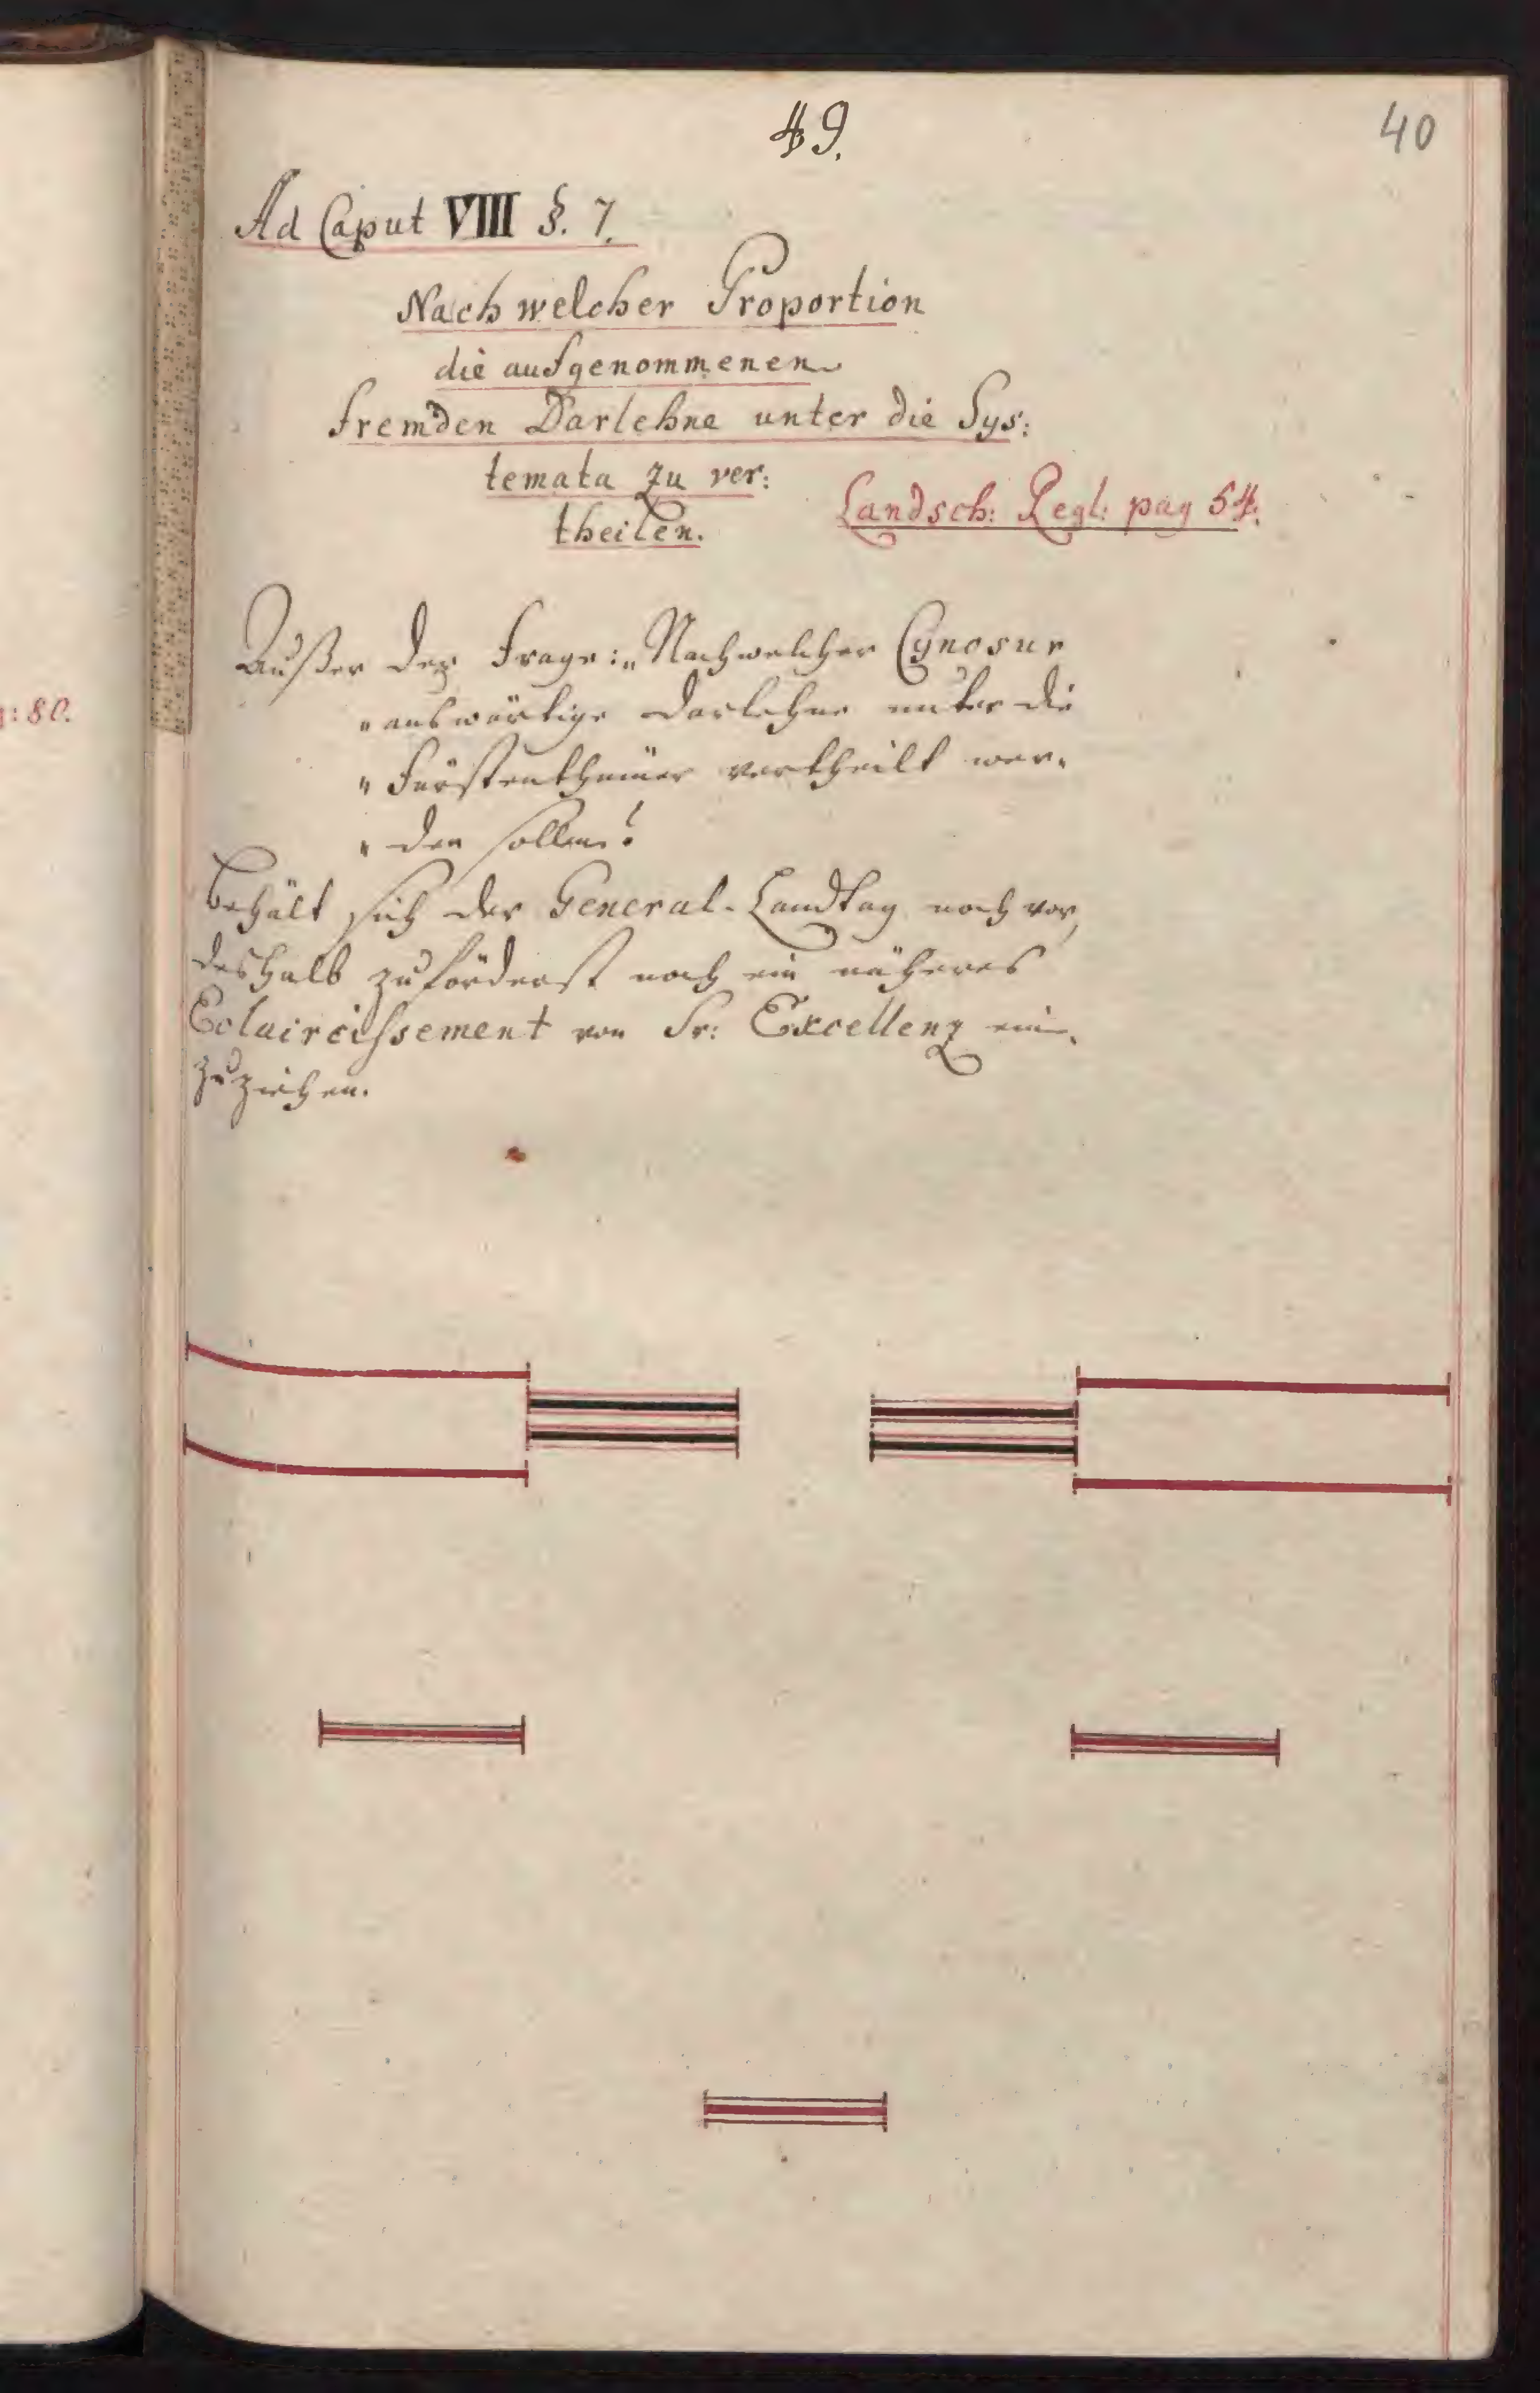 49.
40
Ad Caput VIII §. 7.
Nach welcher Proportion
die aufgenommenen
fremden Darlehne unter die Sys:
temata zu ver:
theilen.
Landsch: Regl: pag 54.
Außer der Frage: „Nach welcher Cynosur
„auswärtige Darlehne unter die
„Fürstenthümer vertheilt wer-
„den sollen?
behält sich der General-Landtag noch vor,
deshalb zuförderst noch ein näheres
Eclaircissement von Sr: Excellenz ein-
zuziehen.
: 80.